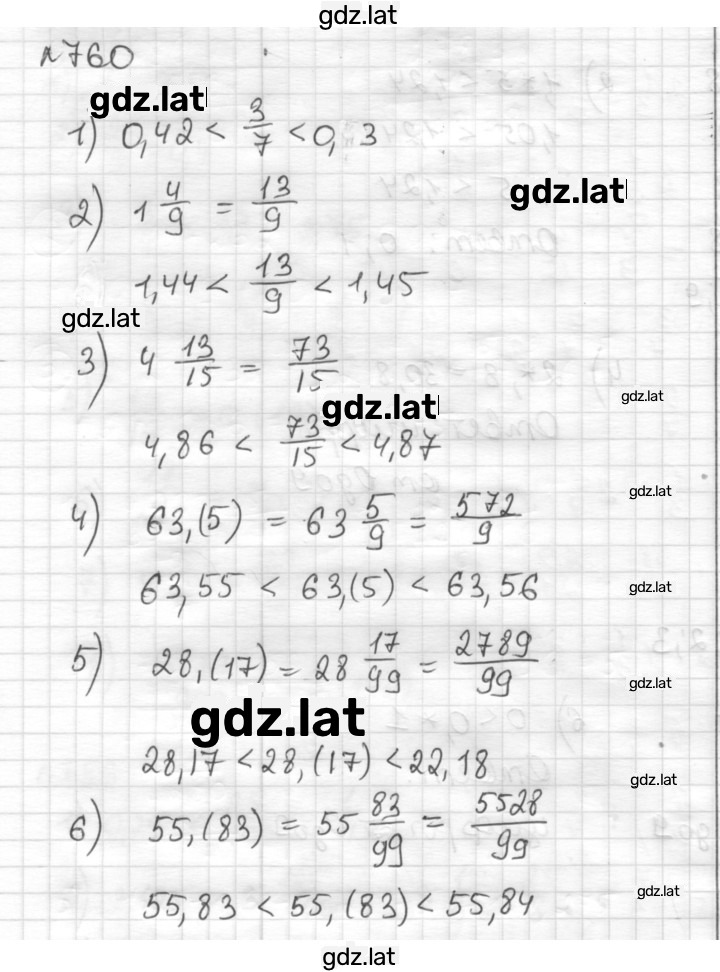 gdz.lat
№760
gdz.lat
1) 0,42 < 3/7 < 0,3
gdz.lat
2) 1 4/9 = 13/9
1,44 < 13/9 < 1,45
gdz.lat
3) 4 13/15 = 73/15
gdz.lat
gdz.lat
4,86 < 73/15 < 4,87
gdz.lat
4) 63,(5) = 63 5/9 = 572/9
63,55 < 63,(5) < 63,56
gdz.lat
5) 28,(17) = 28 17/99 = 2789/99
gdz.lat
gdz.lat
28,17 < 28,(17) < 22,18
gdz.lat
6) 55,(83) = 55 83/99 = 5528/99
gdz.lat
55,83 < 55,(83) < 55,84
gdz.lat